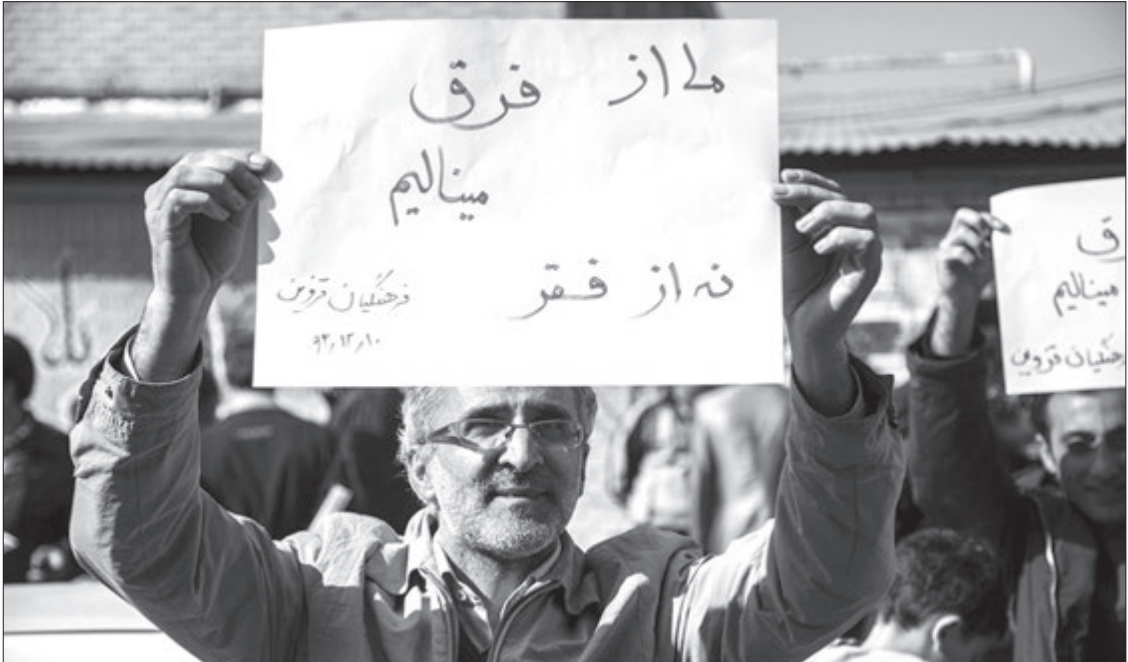 ما از فرق
مینالیم
نه از فقر
فرهنگیان قزوین
۹۳٫۱۲٫۱۰
ق
مینالیم
هنگیان قزوین